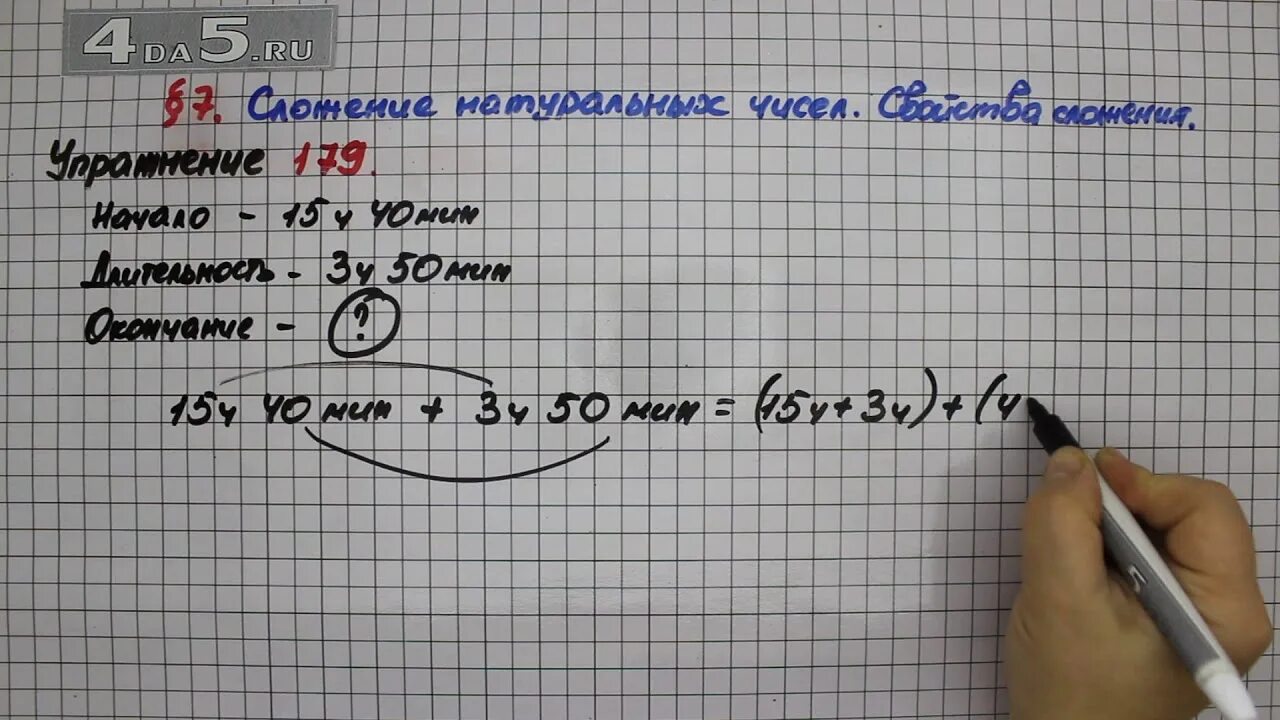 4DA5.RU
§7. Сложение натуральных чисел. Свойства сложения.
Упражнение 179.
Начало - 15ч 40мин
Длительность - 3ч 50мин
Окончание - ?
15ч 40мин + 3ч 50мин = (15ч+3ч)+(4